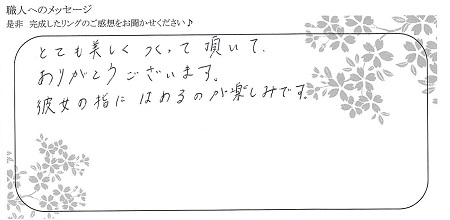 職人へのメッセージ
是非 完成したリングのご感想をお聞かせください♪
とても美しくつくって頂いて、
ありがとうございます。
彼女の指にはめるのが楽しみです。